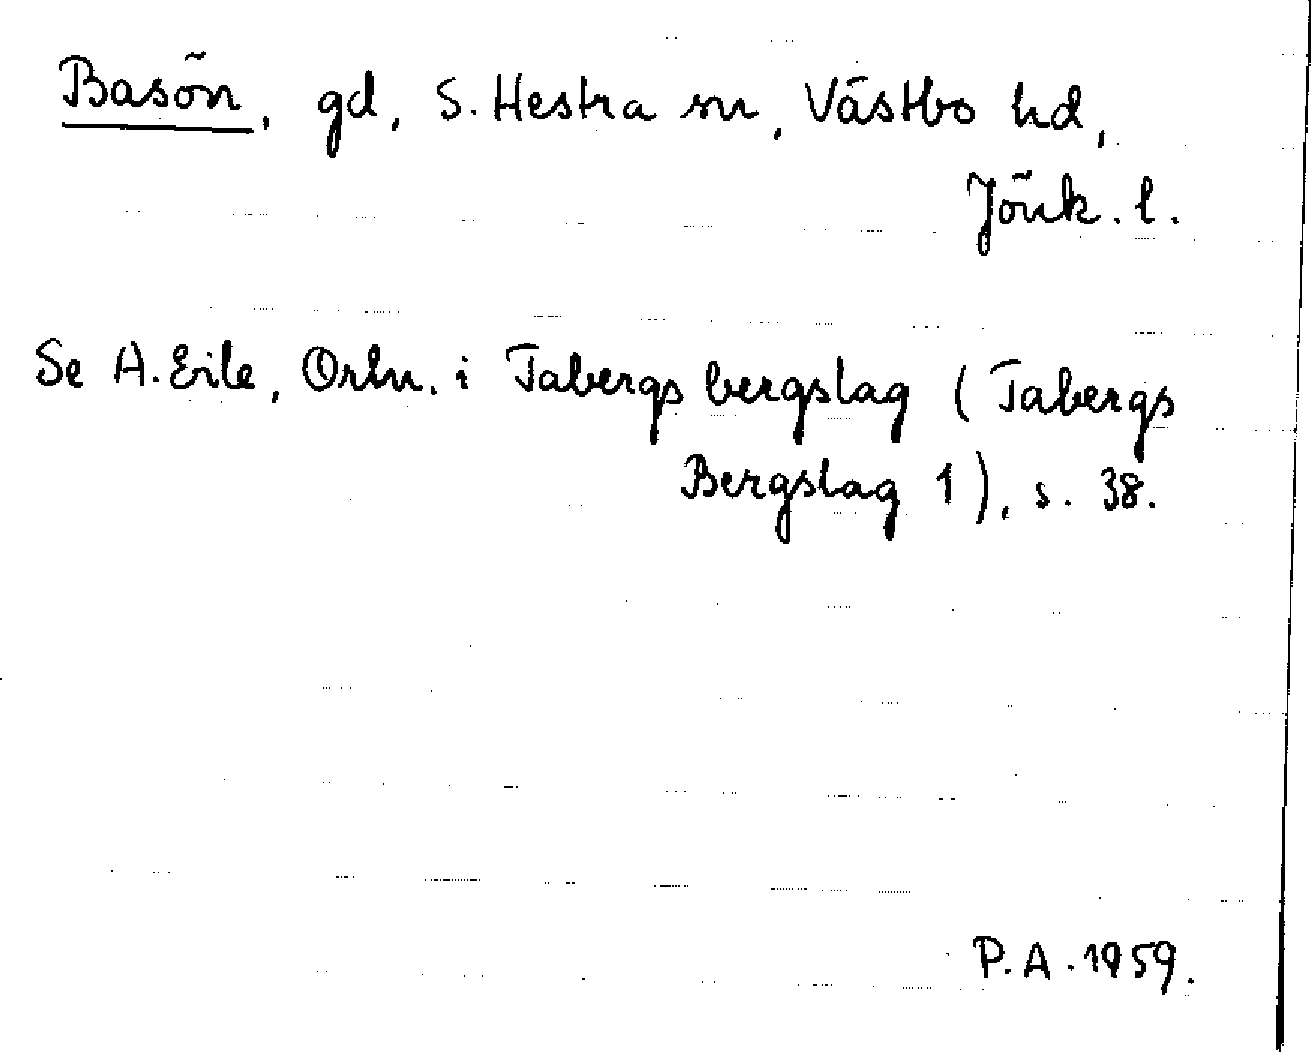 Basön, gd, S. Hestra sn, Västbo hd,
Jönk. l.
Se A. Eile, Ortn. i Tabergs bergslag (Tabergs
Bergslag 1), s. 38.
P. A. 1959.